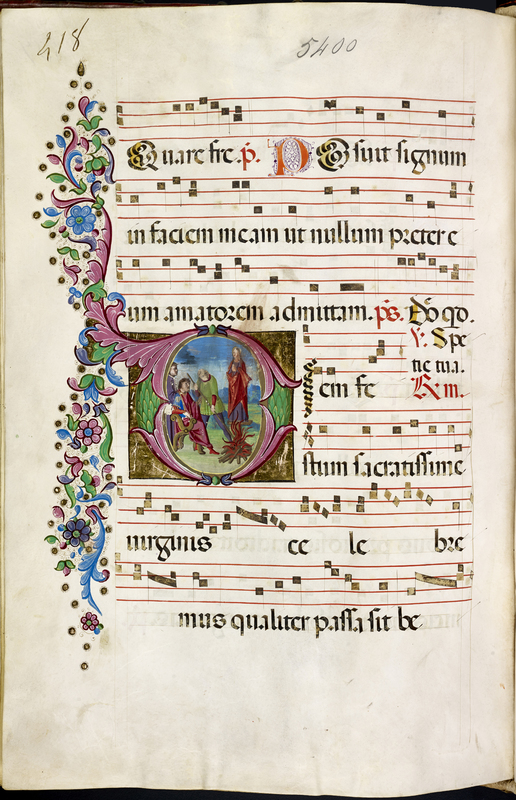 418
5400
Quare fre. p̄. P Osuit signum
in faciem meam ut nullum preter e
um amatorem admittam. ps. Dō qd.
V. Spe
tie tua.
D iem fe R. m.
stum sacratissime
uirginis ce le bre
mus qualiter passa sit be